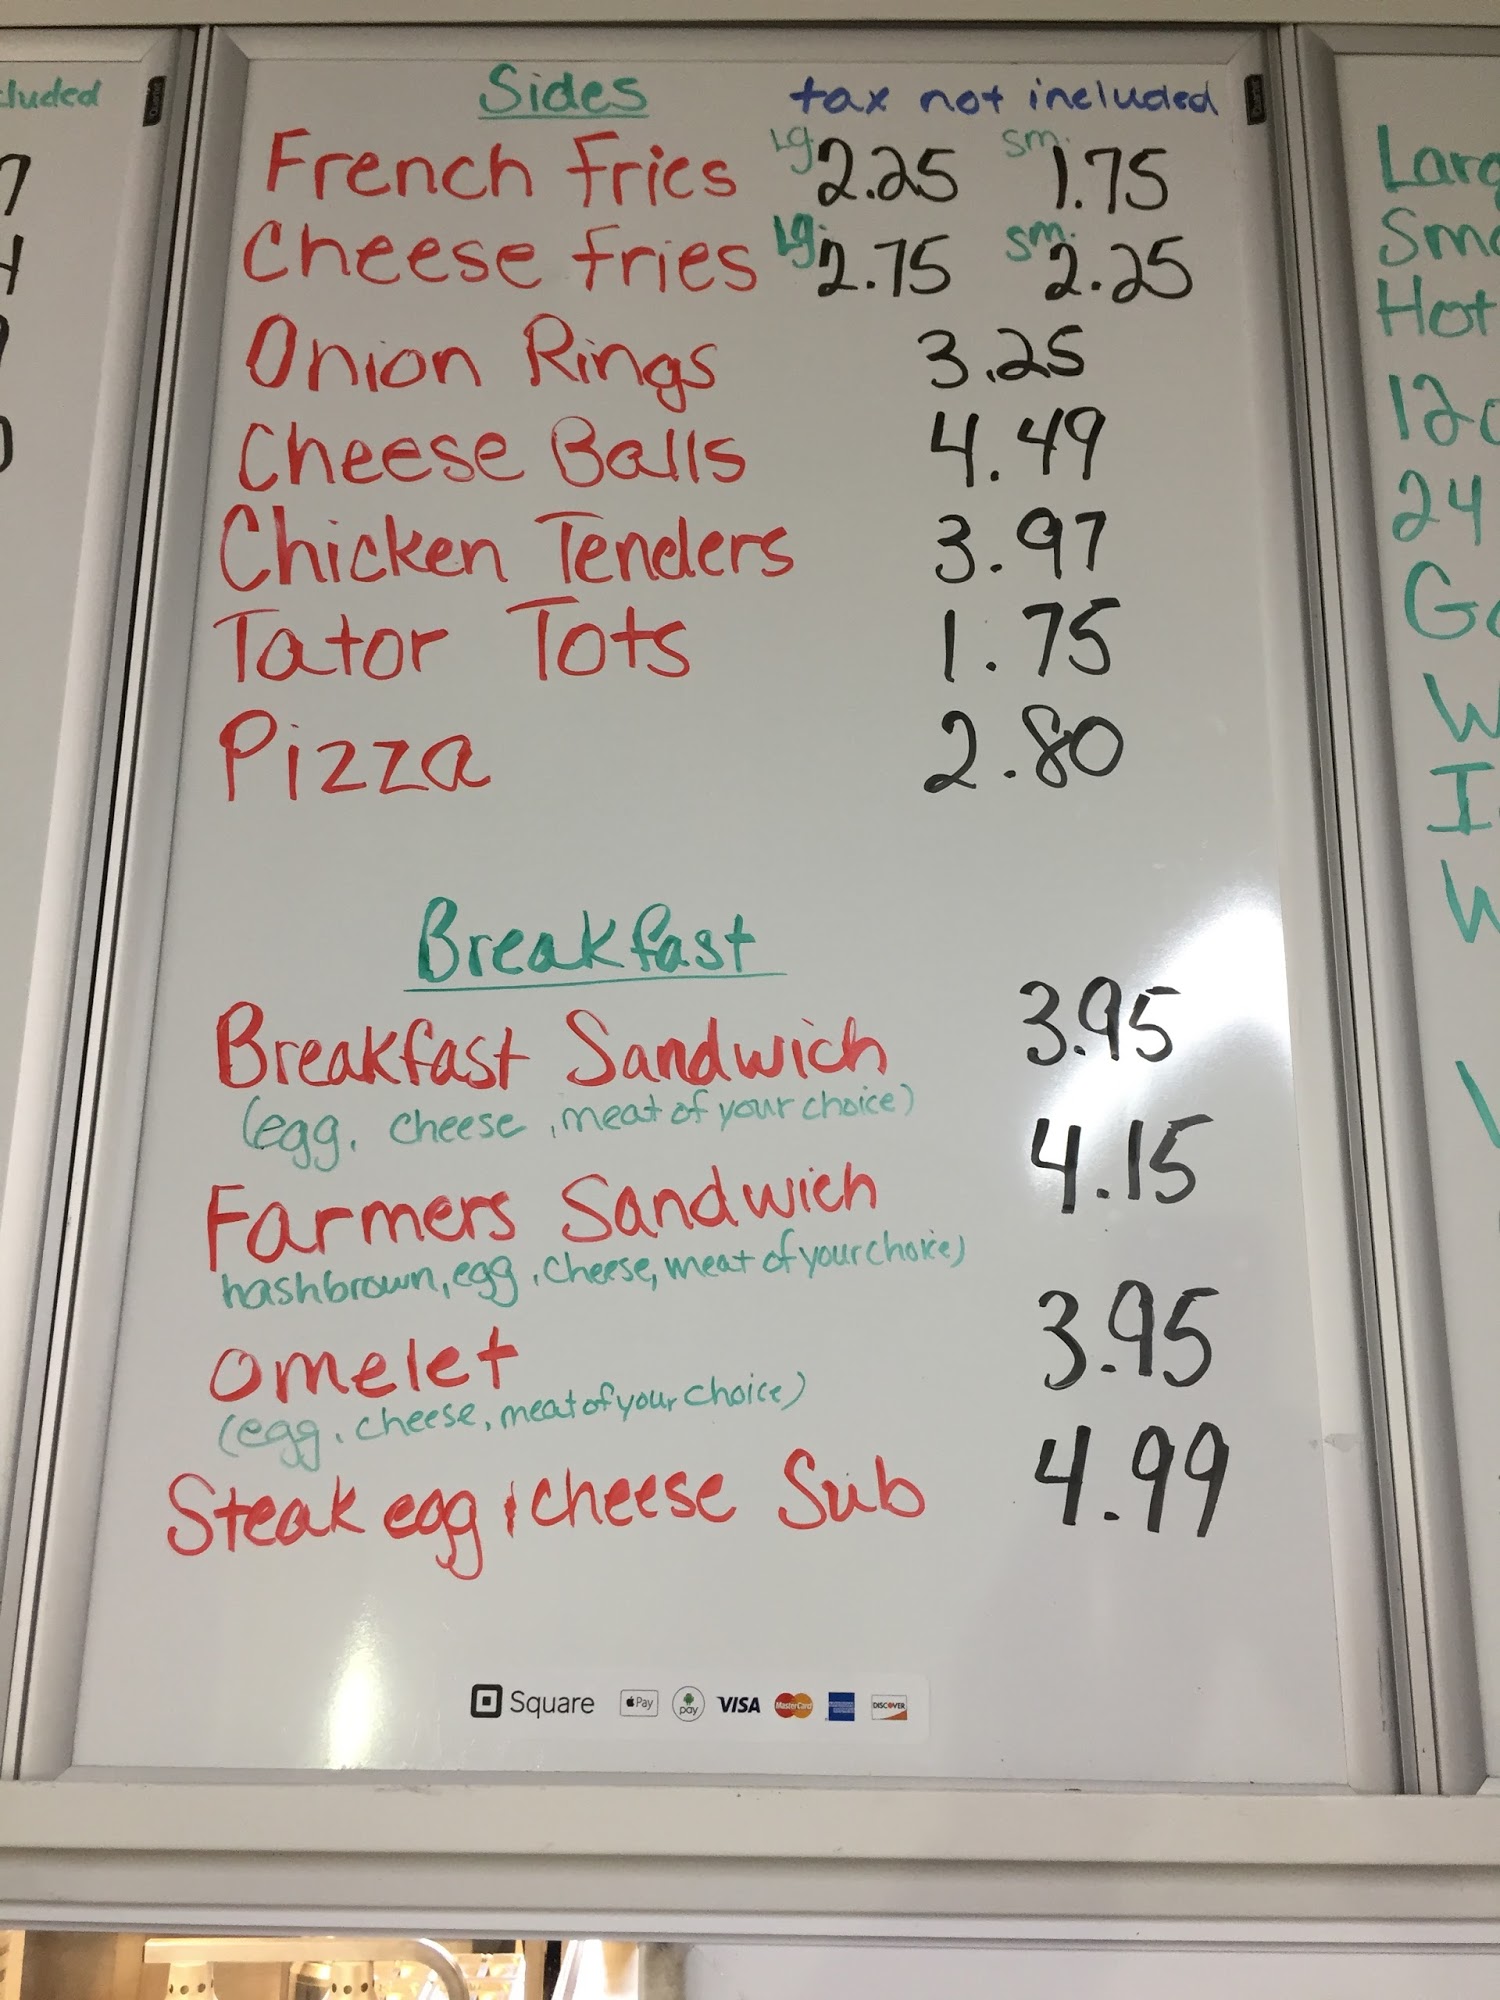 cluded
7
4
Sides tax not included
French fries Lg. 2.25 sm. 1.75
Cheese fries Lg. 2.75 sm. 2.25
Onion Rings 3.25
Cheese Balls 4.49
Chicken Tenders 3.97
Tator Tots 1.75
Pizza 2.80
Breakfast
Breakfast Sandwich 3.95
(egg, cheese, meat of your choice)
Farmers Sandwich 4.15
hashbrown, egg, cheese, meat of your choice)
omelet 3.95
(egg, cheese, meat of your choice)
Steak egg & cheese Sub 4.99
Square Pay pay VISA MasterCard DISCOVER
Larg
Sma
Hot
12o
24
Ga
W
I
W